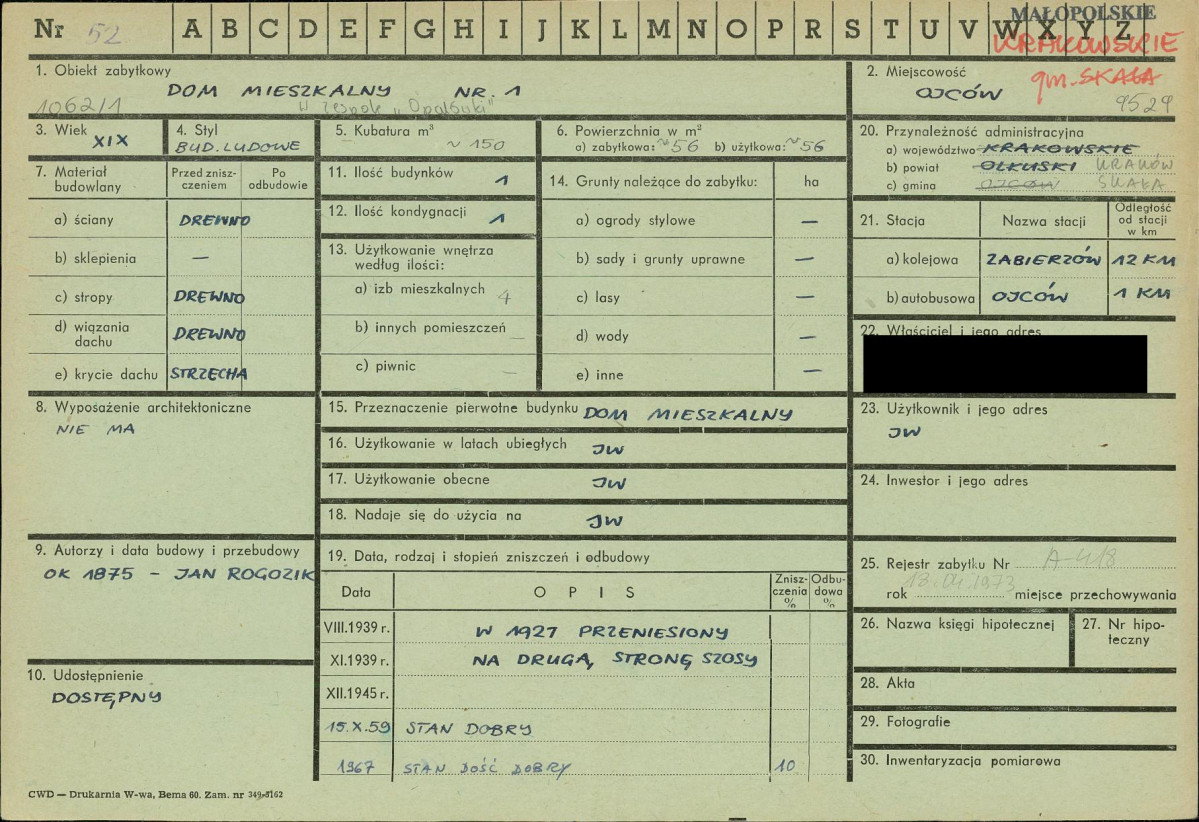 MAŁOPOLSKIE
Nr 52 A B C D E F G H I J K L M N O P R S T U V W X Y Z
KRAKOWSKIE
gm. SKAŁA
1. Obiekt zabytkowy
DOM MIESZKALNY NR. 1
1062/1 W zespole „Opalówki"
2. Miejscowość
OJCÓW
9529
3. Wiek
XIX
4. Styl
BUD. LUDOWE
5. Kubatura m³
~ 150
6. Powierzchnia w m²
a) zabytkowa: ~56 b) użytkowa: ~56
20. Przynależność administracyjna
a) województwo KRAKOWSKIE
b) powiat OLKUSKI KRAKÓW
c) gmina OJCÓW SKAŁA
7. Materiał budowlany
Przed znisz-czeniem
Po odbudowie
a) ściany DREWNO
b) sklepienia —
c) stropy DREWNO
d) wiązania dachu DREWNO
e) krycie dachu STRZECHA
11. Ilość budynków 1
12. Ilość kondygnacji 1
13. Użytkowanie wnętrza
według ilości:
a) izb mieszkalnych 4
b) innych pomieszczeń —
c) piwnic —
14. Grunty należące do zabytku: ha
a) ogrody stylowe —
b) sady i grunty uprawne —
c) lasy —
d) wody —
e) inne —
21. Stacja Nazwa stacji Odległość od stacji w km
a) kolejowa ZABIERZÓW 12 KM
b) autobusowa OJCÓW 1 KM
22. Właściciel i jego adres
8. Wyposażenie architektoniczne
NIE MA
15. Przeznaczenie pierwotne budynku DOM MIESZKALNY
16. Użytkowanie w latach ubiegłych JW
17. Użytkowanie obecne JW
18. Nadaje się do użycia na JW
23. Użytkownik i jego adres
JW
24. Inwestor i jego adres
9. Autorzy i data budowy i przebudowy
OK 1875 – JAN ROGOZIK
10. Udostępnienie
DOSTĘPNY
19. Data, rodzaj i stopień zniszczeń i odbudowy
Data OPIS Znisz-czenia % Odbu-dowa %
VIII.1939 r. W 1927 PRZENIESIONY
XI.1939 r. NA DRUGĄ STRONĘ SZOSY
XII.1945 r.
15.X.59 STAN DOBRY
1967 STAN DOŚĆ DOBRY 10
25. Rejestr zabytku Nr A-418
rok 18.04.1973 miejsce przechowywania
26. Nazwa księgi hipotecznej
27. Nr hipo-teczny
28. Akta
29. Fotografie
30. Inwentaryzacja pomiarowa
CWD — Drukarnia W-wa, Bema 60. Zam. nr 349-5162